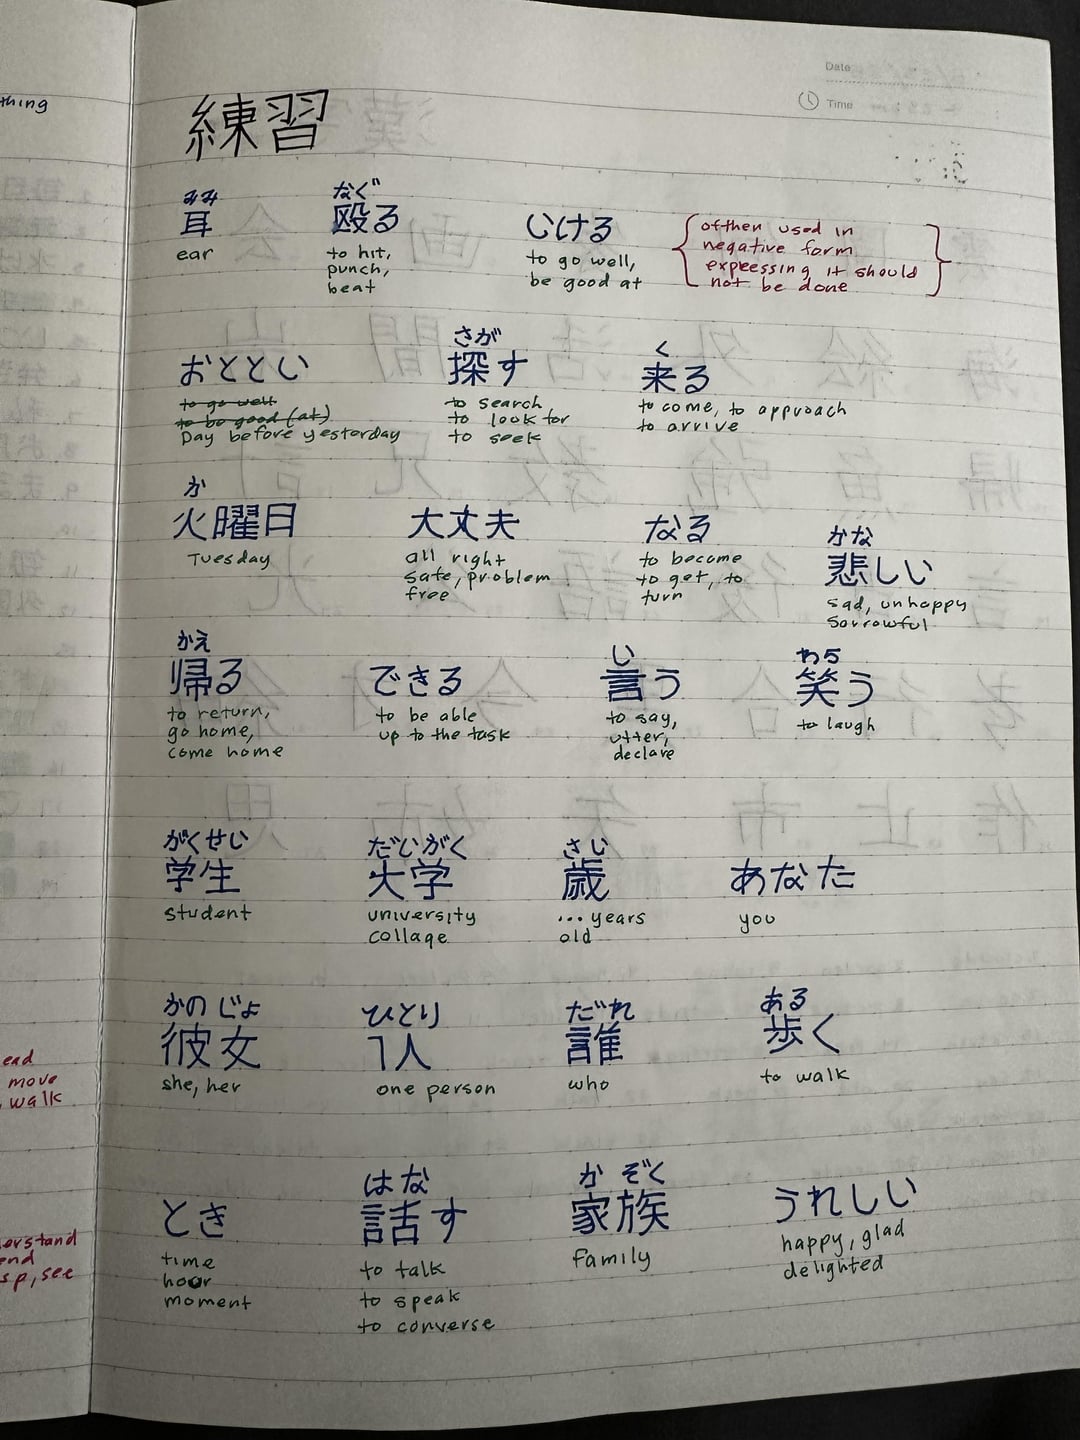 Date
Time
練習
みみ
耳
ear
なぐ
殴る
to hit,
punch,
beat
いける
to go well,
be good at
ofthen used in
negative form
expressing it should
not be done
おととい
to go well
to be good (at)
Day before yesterday
さが
探す
to search
to look for
to seek
く
来る
to come, to approach
to arrive
か
火曜日
Tuesday
大丈夫
all right
safe, problem
free
なる
to become
to get, to
turn
かな
悲しい
sad, unhappy
sorrowful
かえ
帰る
to return,
go home,
come home
できる
to be able
up to the task
い
言う
to say,
utter,
declare
わら
笑う
to laugh
がくせい
学生
student
だいがく
大学
university
collage
さい
歳
...years
old
あなた
you
かのじょ
彼女
she, her
ひとり
1人
one person
だれ
誰
who
ある
歩く
to walk
とき
time
hour
moment
はな
話す
to talk
to speak
to converse
かぞく
家族
family
うれしい
happy, glad
delighted
thing
ead
move
walk
erstand
end
sp, see